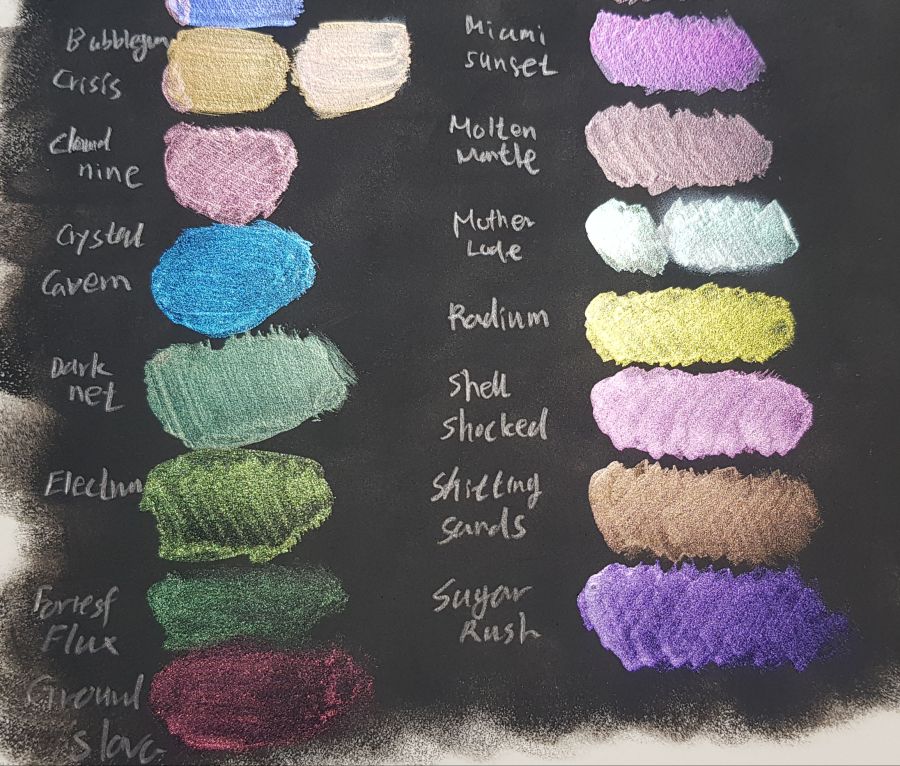 Bubblegum
Crisis
Cloud
nine
Crystal
Cavern
Dark
net
Electrum
Forrest
Flux
Ground
's love
Miami
sunset
Molten
Mantle
Mother
Lode
Radium
Shell
shocked
Shifting
sands
Sugar
Rush